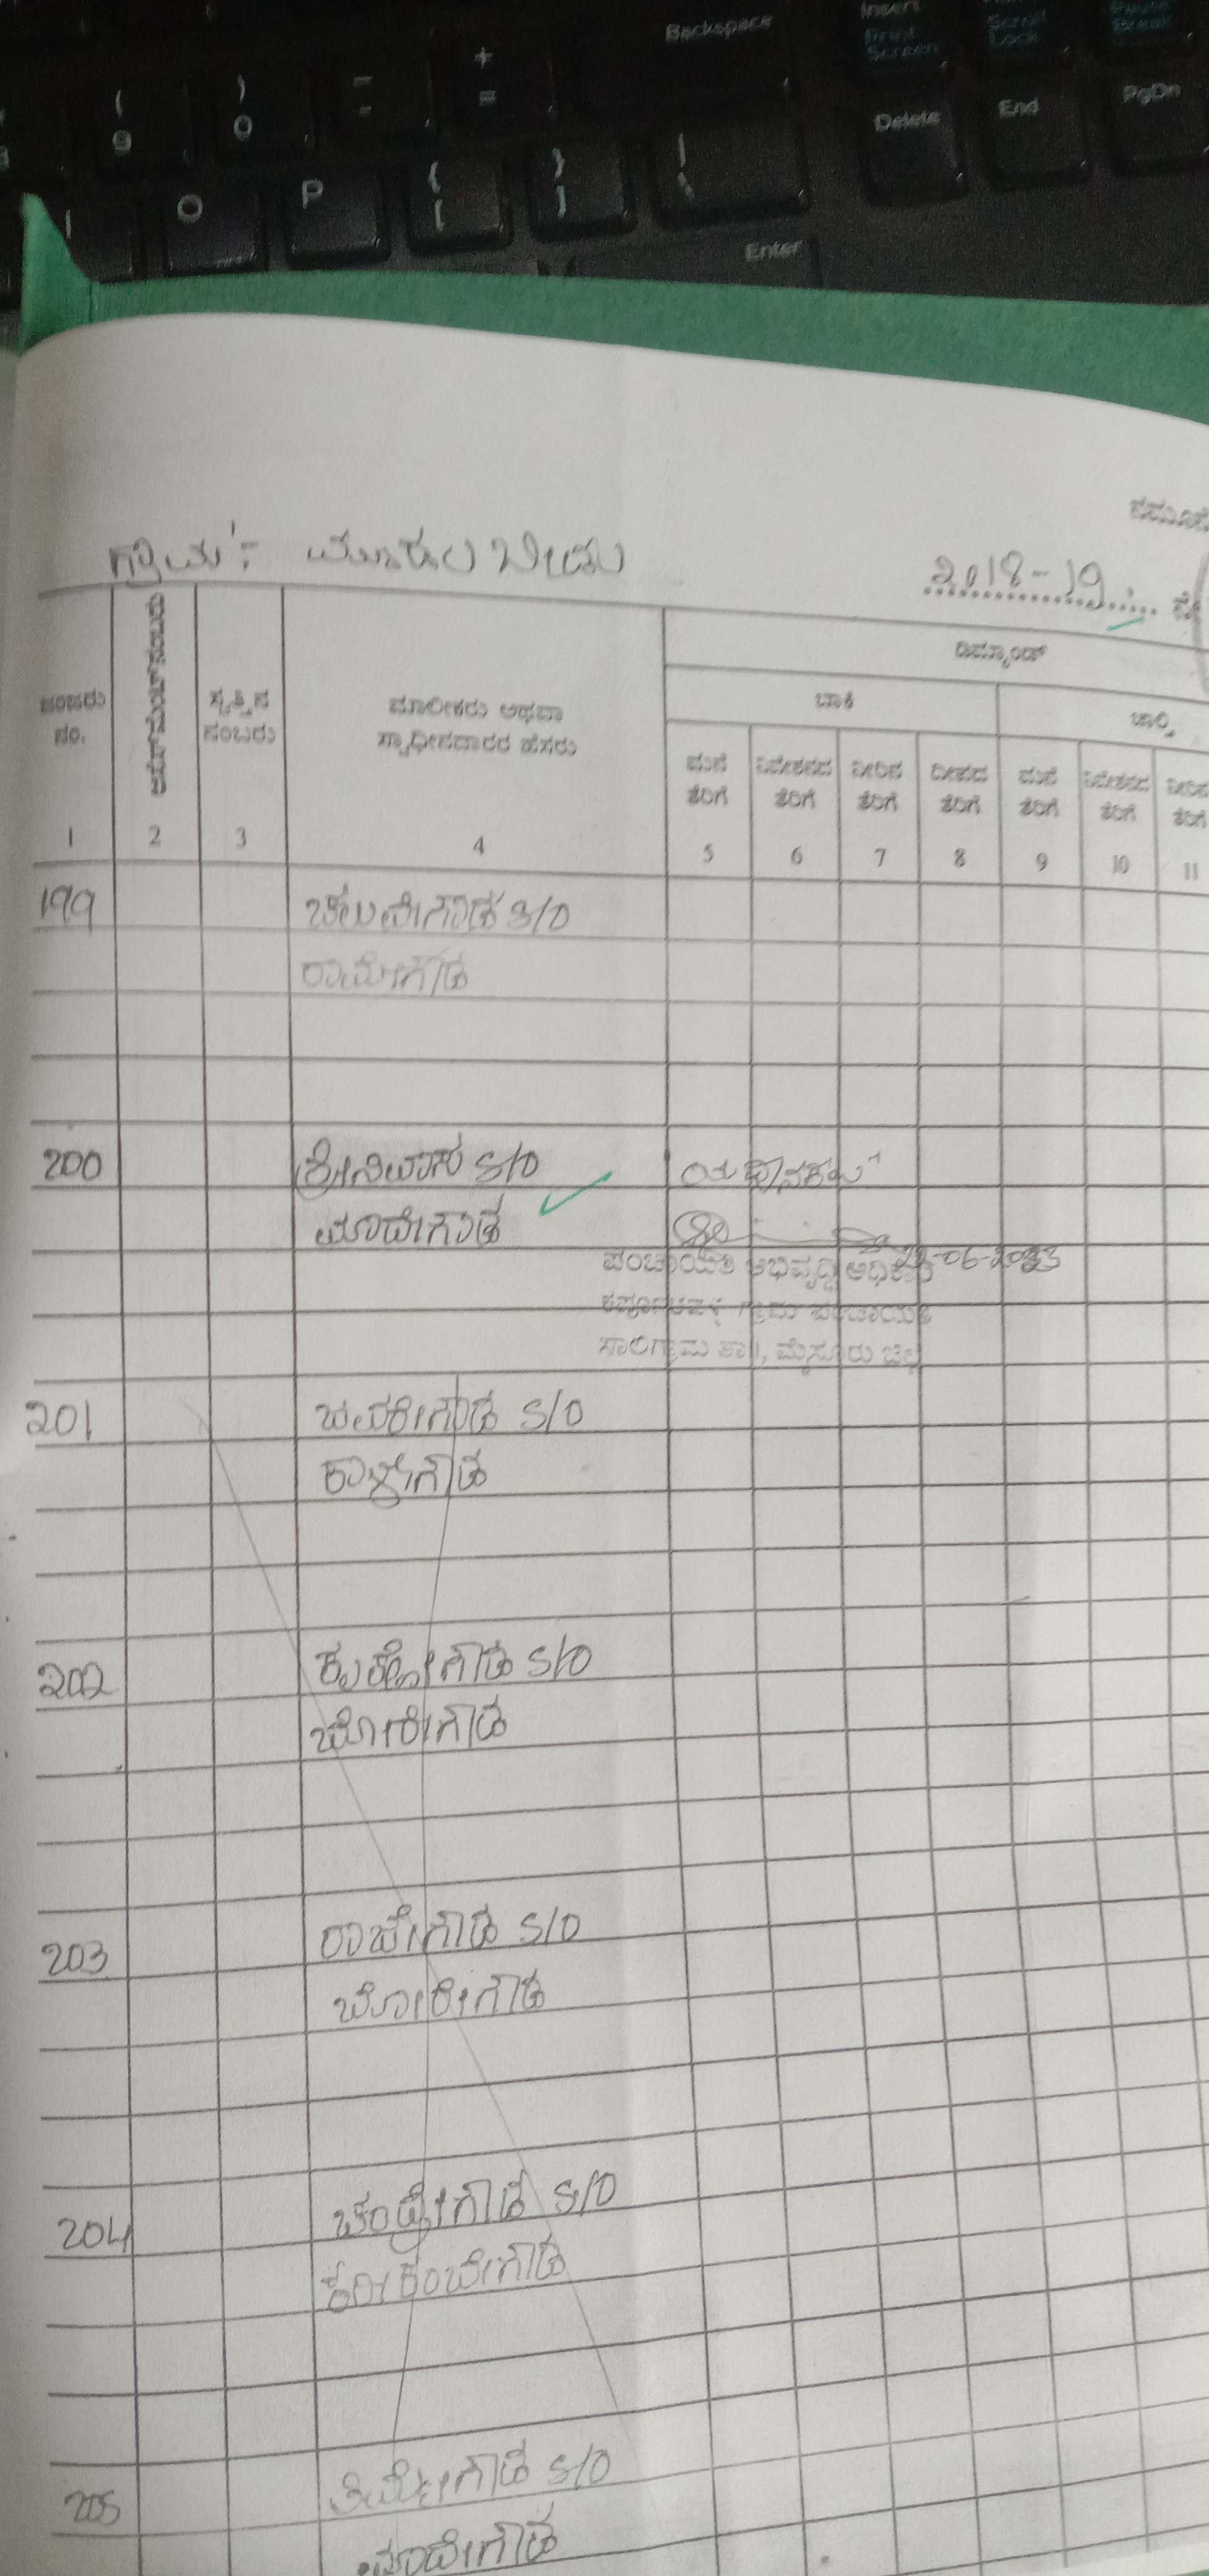 Backspace
Insert
Print Screen
Scroll Lock
Pause Break
Delete
End
PgDn
( 9
) 0
+ =
O
P
{ [
} ]
Enter
ಗ್ರಾಮ :-
2018-19
ಡಿಮ್ಯಾಂಡ್
ಬಾಕಿ
ಚಾಲ್ತಿ
ನಂ.
ಅಸೆಸ್‌ಮೆಂಟ್ ನಂಬರು
ಸ್ವತ್ತಿನ ನಂಬರು
ಮಾಲೀಕರು ಅಥವಾ
ಸ್ವಾಧೀನದಾರರ ಹೆಸರು
ಮನೆ ತೆರಿಗೆ
ನಿವೇಶನದ ತೆರಿಗೆ
ನೀರಿನ ತೆರಿಗೆ
ದೀಪದ ತೆರಿಗೆ
ಮನೆ ತೆರಿಗೆ
ನಿವೇಶನದ ತೆರಿಗೆ
ನೀರಿನ ತೆರಿಗೆ
1 2 3 4 5 6 7 8 9 10 11
199 ಚೆಲುವೇಗೌಡ S/O
ರಾಮೇಗೌಡ
200 ಶ್ರೀನಿವಾಸ S/O
ಮಾದೇಗೌಡ
22-06-2023
ಪಂಚಾಯಿತಿ ಅಭಿವೃದ್ಧಿ ಅಧಿಕಾರಿ
ಗ್ರಾಮ ಪಂಚಾಯಿತಿ
ಸಾಲಿಗ್ರಾಮ ತಾ||, ಮೈಸೂರು ಜಿಲ್ಲೆ
201 ಜವರೇಗೌಡ S/O
ಕಾಳೇಗೌಡ
202 S/O
ಬೋರೇಗೌಡ
203 ರಾಜೇಗೌಡ S/O
ಬೋರೇಗೌಡ
204 ಚಂದ್ರೇಗೌಡ S/O
205 ತಿಮ್ಮೇಗೌಡ S/O
ಮಾದೇಗೌಡ